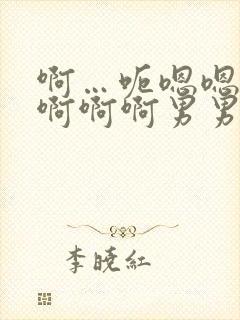 啊…呃嗯嗯
啊啊啊男男
李晓红